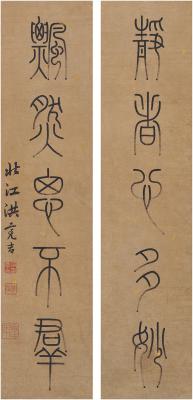 靜者心多妙
飄然思不羣
北江洪亮吉